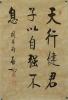 天行健君
子以自强不
息